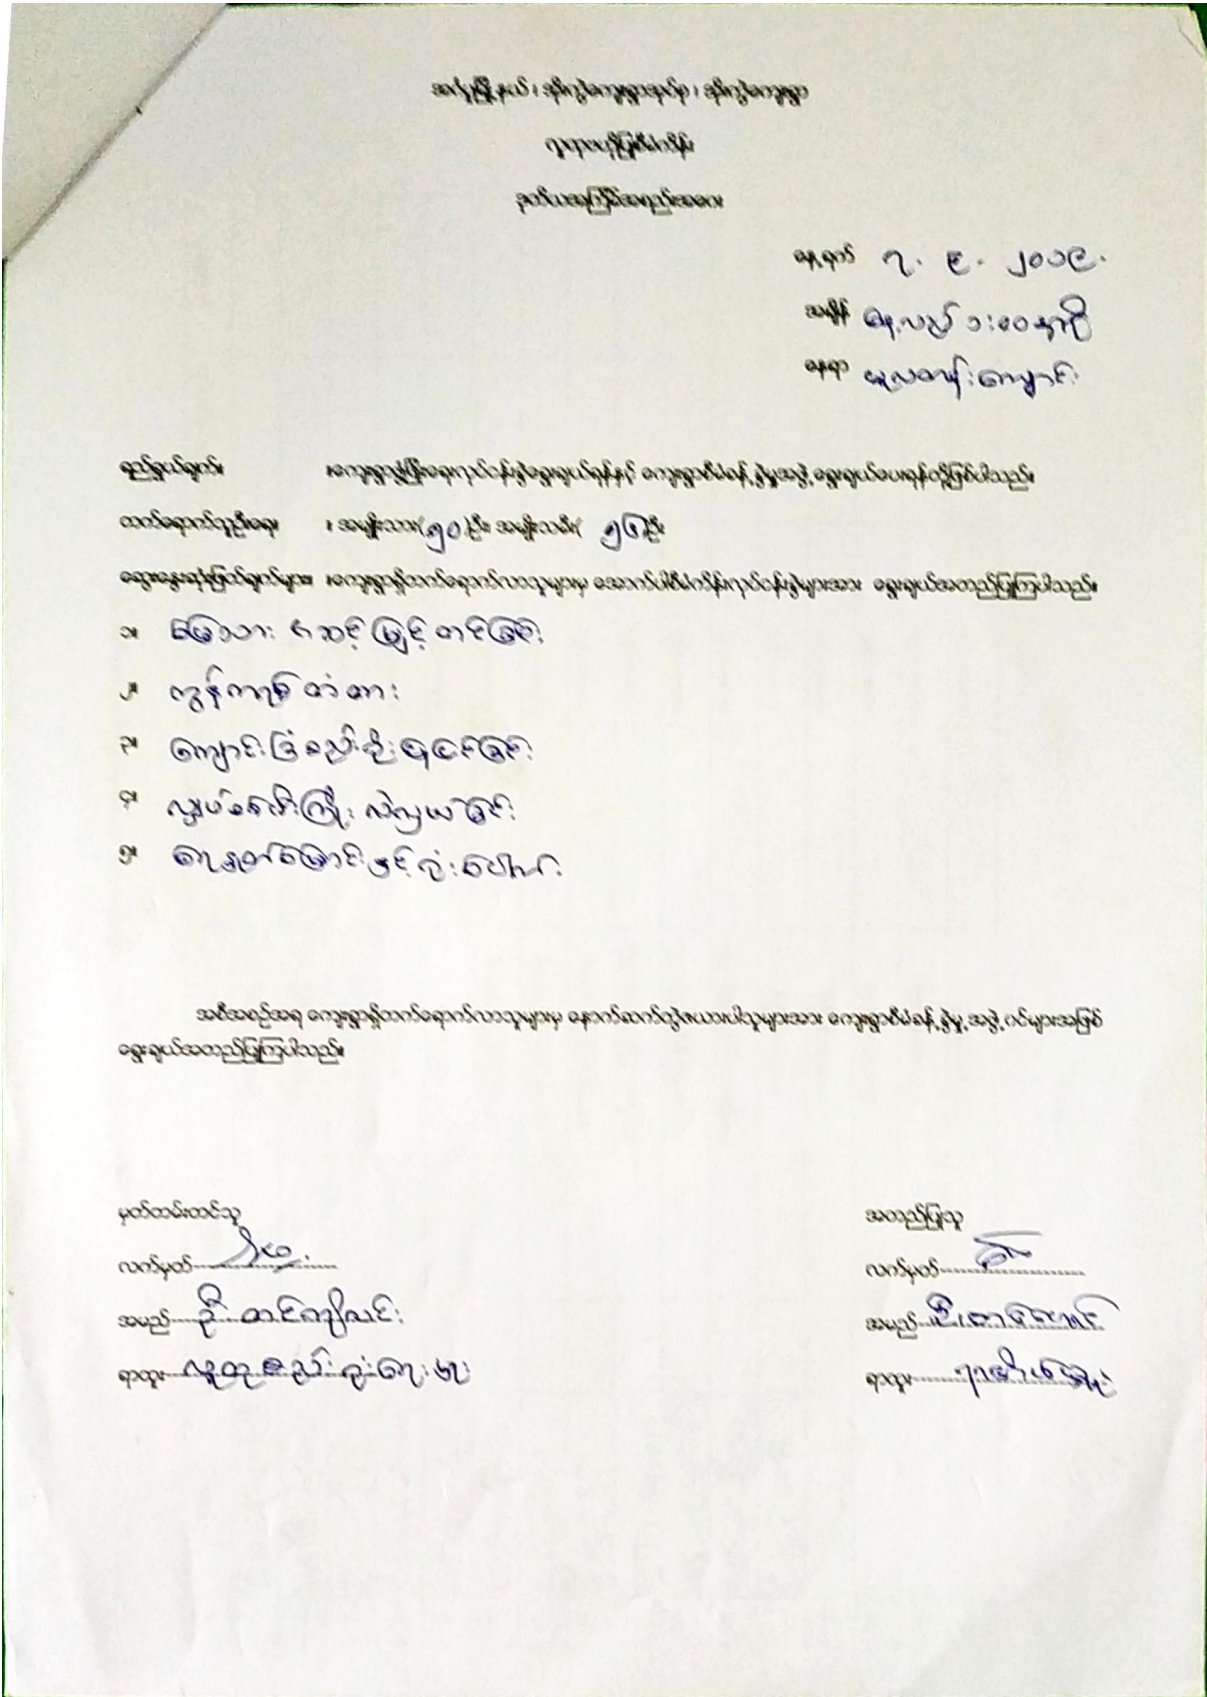 အင်္ဂပူမြို့နယ်၊ အိုးကွဲကျေးရွာအုပ်စု၊ အိုးကွဲကျေးရွာ
လူထုဗဟိုပြုစီမံကိန်း
ဒုတိယအကြိမ်အစည်းအဝေး
နေ့ရက် ၇. ၉. ၂၀၁၉.
အချိန် နေ့လည် ၁:၀၀ နာရီ
နေရာ မူလတန်းကျောင်း
ရည်ရွယ်ချက်။ ။ကျေးရွာဖွံ့ဖြိုးရေးလုပ်ငန်းခွဲရွေးချယ်ရန်နှင့် ကျေးရွာစီမံခန့်ခွဲမှုအဖွဲ့ ရွေးချယ်ပေးရန်တို့ဖြစ်ပါသည်။
တက်ရောက်သူဦးရေ။ ။ အမျိုးသား(၅၀)ဦး၊ အမျိုးသမီး( ၅၆)ဦး
ဆွေးနွေးဆုံးဖြတ်ချက်များ။ ။ကျေးရွာရှိတက်ရောက်လာသူများမှ အောက်ပါစီမံကိန်းလုပ်ငန်းခွဲများအား ရွေးချယ်အတည်ပြုကြပါသည်။
၁။ မြေသားအဆင့်မြှင့်တင်ခြင်း
၂။ ကွန်ကရစ်တံတား
၃။ ကျောင်းခြံစည်းရိုးပြုပြင်ခြင်း
၄။ လျှပ်စစ်ဓါတ်ကြိုး လဲလှယ်ခြင်း
၅။ ရေနုတ်မြောင်းနှင့်ရုံးပေါက်
အစီအစဉ်အရ ကျေးရွာရှိတက်ရောက်လာသူများမှ နောက်ဆက်တွဲဇယားပါသူများအား ကျေးရွာစီမံခန့်ခွဲမှု အဖွဲ့ ဝင်များအဖြစ်
ရွေးချယ်အတည်ပြုကြပါသည်။
မှတ်တမ်းတင်သူ
အတည်ပြုသူ
လက်မှတ်
လက်မှတ်
အမည် ဦးတင်ကျော်လင်း
အမည်
ရာထူး လူထုစည်းရုံးရေးမှူး
ရာထူး ရာအိမ်မှူး